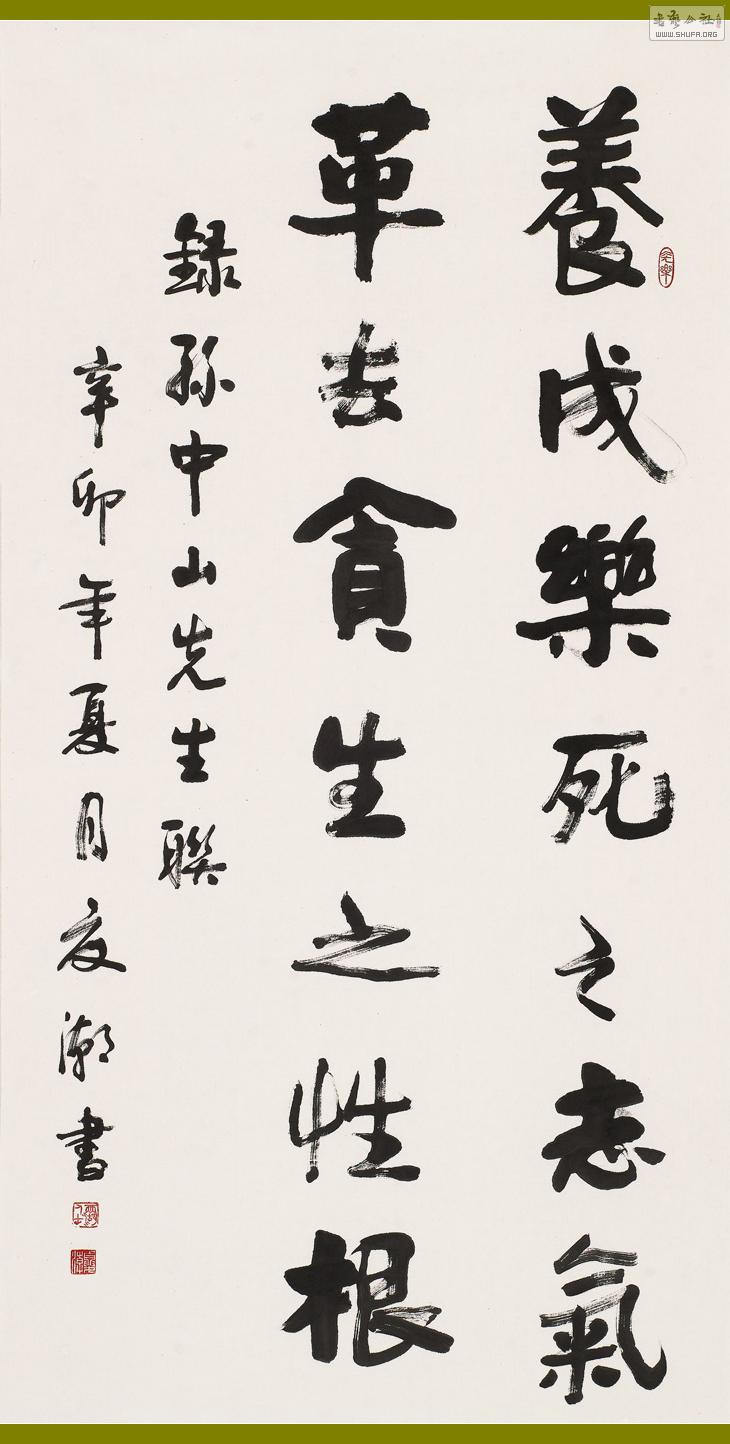 養成樂死之志氣
革去貪生之性根
録孫中山先生聯
辛卯年夏月友潮書
WWW.SHUFA.ORG